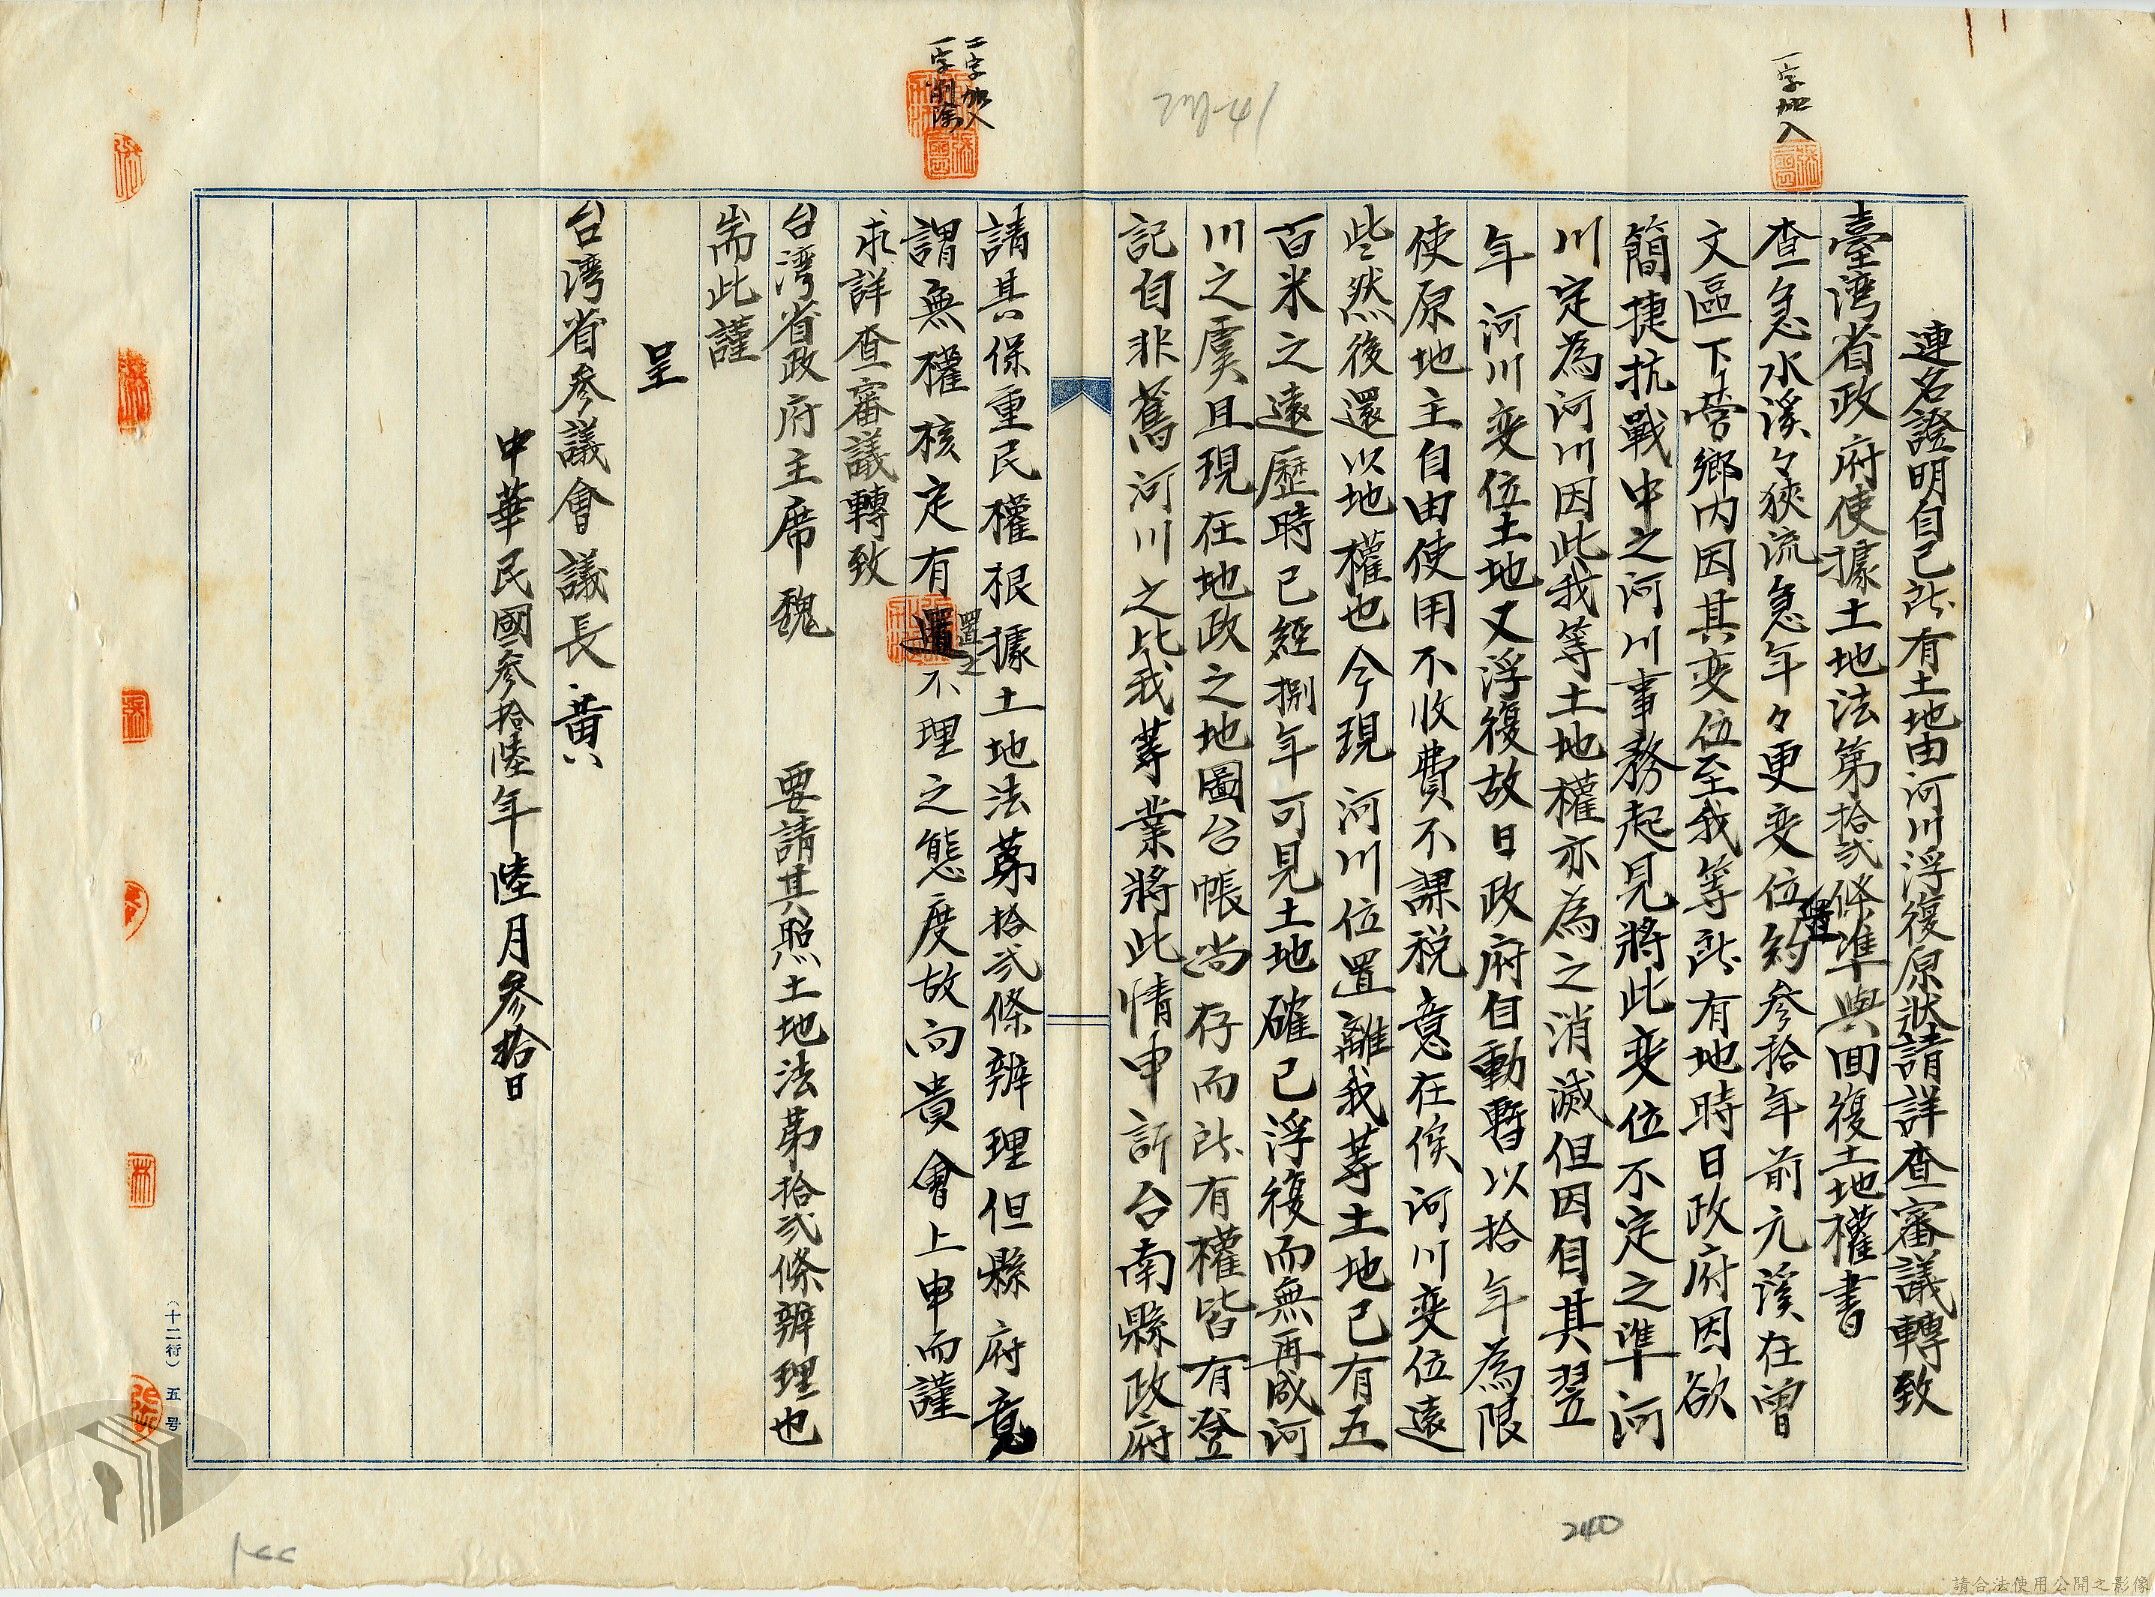 一字加入
連名證明自己所有土地由河川浮復原狀請詳查審議轉致
臺湾省政府使據土地法第拾弍條準與囬復土地權書
查急水溪々狹流急年々更変位置約參拾年前元溪在曾
文區下营鄉內因其变位至我等所有地時日政府因欲
簡捷抗戰中之河川事務起見將此変位不定之準河
川定為河川因此我等土地權亦為之消滅但因自其翌
年河川变位土地又浮復故日政府自動暫以拾年為限
使原地主自由使用不收費不課税意在俟河川变位遠
些然後還以地權也今現河川位置離我等土地已有五
百米之遠歷時已經捌年可見土地確已浮復而無再成河
川之虞且現在地政之地圖台帳尚存而所有權皆有登
記自非舊河川之比我等業將此情申訴台南縣政府
二字加入
一字削除
請其保重民權根據土地法第拾弍條辦理但縣府竟
謂無權核定有置之不理之態度故向貴會上申而謹
求詳查審議轉致
台湾省政府主席魏　要請其照土地法第拾弍條辦理也
耑此謹
呈
台湾省參議會議長黃
中華民國參拾陸年陸月參拾日
(十二行) 五号
240
請合法使用公開之影像